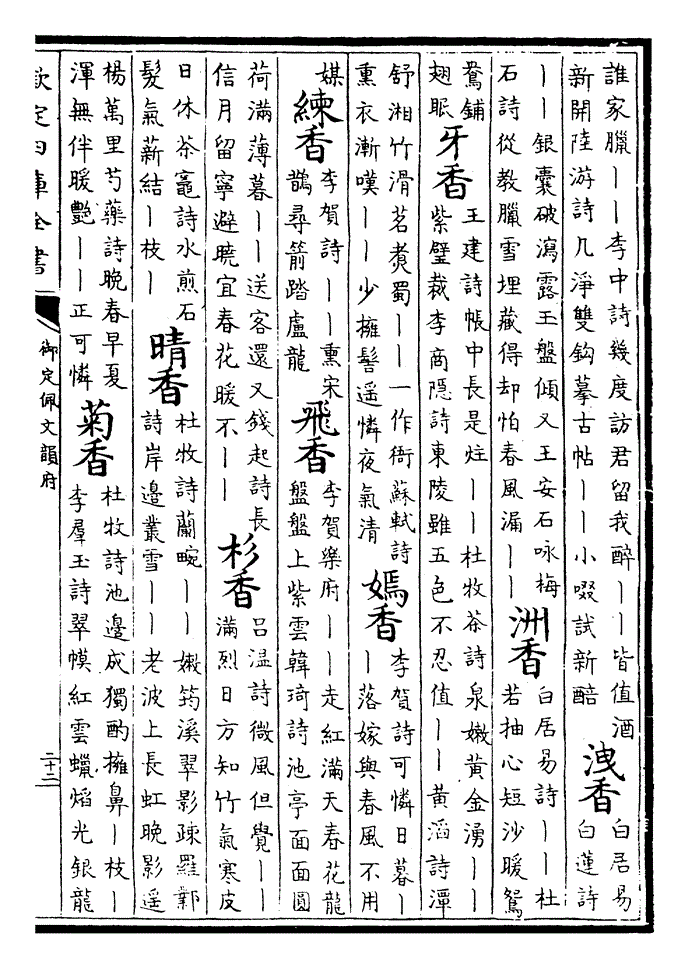 誰家臘丨丨李中詩幾度訪君留我醉丨丨皆值酒
新開陸游詩几淨雙鈎摹古帖丨丨小啜試新醅
洩香
白居易
白蓮詩
丨丨銀囊破瀉露玉盤傾又王安石咏梅
石詩從教臘雪埋藏得却怕春風漏丨丨
洲香
白居易詩丨丨杜
若抽心短沙暖鴛
鴦鋪
翅眠
牙香
王建詩帳中長是炷丨丨杜牧茶詩泉嫩黃金湧丨丨
紫璧裁李商隱詩東陵雖五色不忍值丨丨黃滔詩潭
舒湘竹滑茗煑蜀丨丨一作衙蘇軾詩
熏衣漸嘆丨丨少擁髻遥憐夜氣清
嫣香
李賀詩可憐日暮丨
丨落嫁與春風不用
媒
練香
李賀詩丨丨熏宋
鵲尋箭踏盧龍
飛香
李賀樂府丨丨走紅滿天春花龍
盤盤上紫雲韓琦詩池亭面面圓
荷滿薄暮丨丨送客還又錢起詩長
信月留寧避曉宜春花暖不丨丨
杉香
吕温詩微風但覺丨丨
滿烈日方知竹氣寒皮
日休茶竈詩水煎石
髮氣薪結丨枝丨
晴香
杜牧詩蘭畹丨丨嫩筠溪翠影疎羅鄴
詩岸邊叢雪丨丨老波上長虹晚影遥
楊萬里芍藥詩晚春早夏
渾無伴暖艷丨丨正可憐
菊香
杜牧詩池邊成獨酌擁鼻丨枝丨
李羣玉詩翠幙紅雲蠟焰光銀龍
欽定四庫全書
御定佩文韻府
二十二